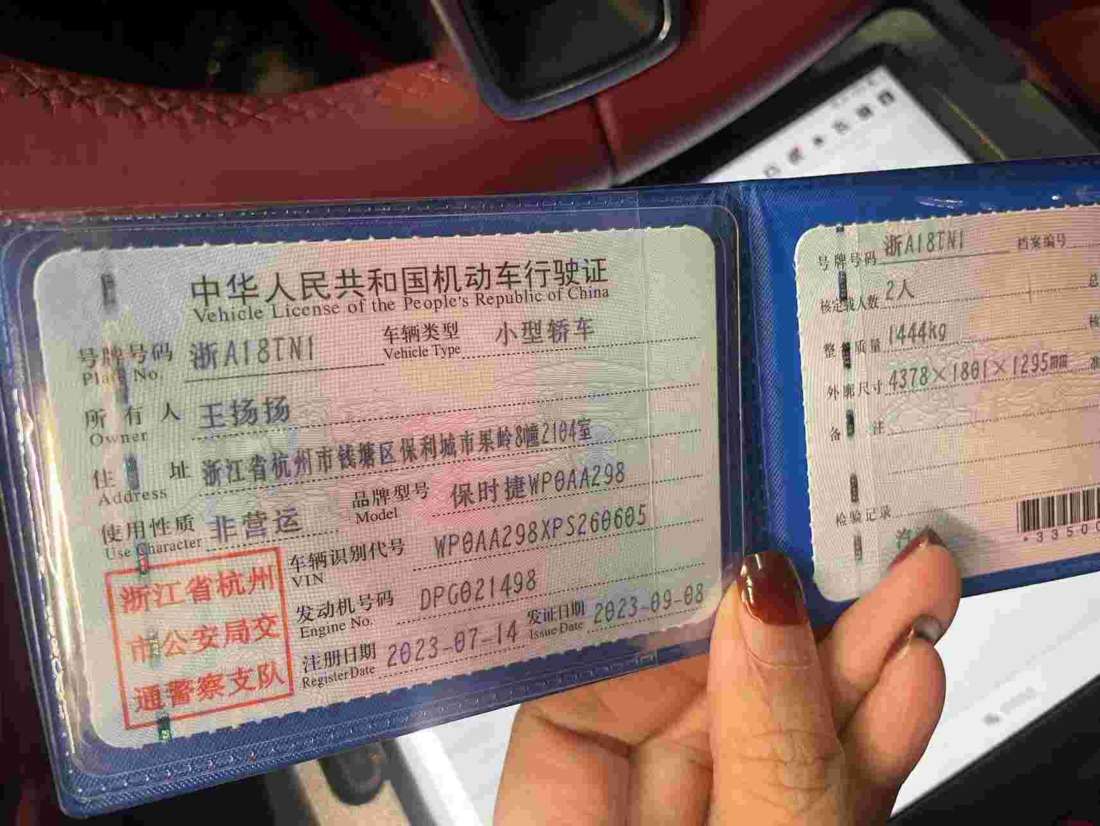 中华人民共和国机动车行驶证
Vehicle License of the People's Republic of China
号牌号码 浙A18TN1 车辆类型 小型轿车
Plate No. Vehicle Type
所有人 王扬扬
Owner
住址 浙江省杭州市钱塘区保利城市果岭8幢2104室
Address
使用性质 非营运 品牌型号 保时捷WP0AA298
Use Character Model
车辆识别代号 WP0AA298XPS260605
VIN
发动机号码 DPG021498
Engine No.
注册日期 2023-07-14 发证日期 2023-09-08
Register Date Issue Date
浙江省杭州
市公安局交
通警察支队
号牌号码 浙A18TN1 档案编号
核定载人数 2人 总
整备质量 1444kg 核
外廓尺寸 4378×1801×1295mm 准
备注
检验记录
*33500